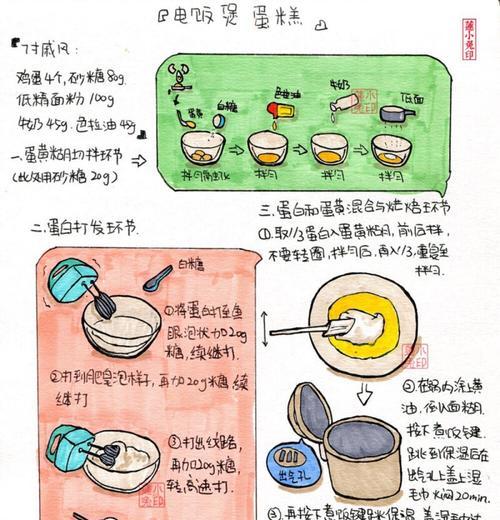 电饭煲蛋糕
7寸戚风:
鸡蛋4个,砂糖80g
低精面粉100g
牛奶45g.色拉油48g
一.蛋黄糊切拌环节
(此处用砂糖20g)
蛋黄
白糖
色拉油
牛奶
低面
拌匀
拌匀
拌匀
二.蛋白打发环节.
白糖
①将蛋白打至鱼
眼泡状加20g
糖,续继打.
②打到肥皂泡样子,再加20g糖续
继打
③打出纹路,
再加20g糖,
转高速打.
三.蛋白和蛋黄混合与烘焙环节
①取1/3蛋白入蛋黄糊,前后拌,
不要转圈,拌匀后,再入1/3,重复至
拌匀.
②在锅内涂上黄
油,倒入面糊.
按下煮饭键
跳到保温后在
出气孔上盖上湿
毛巾火闷20min.
出气孔
③再按下煮饭键跳保温
蓮小兔印